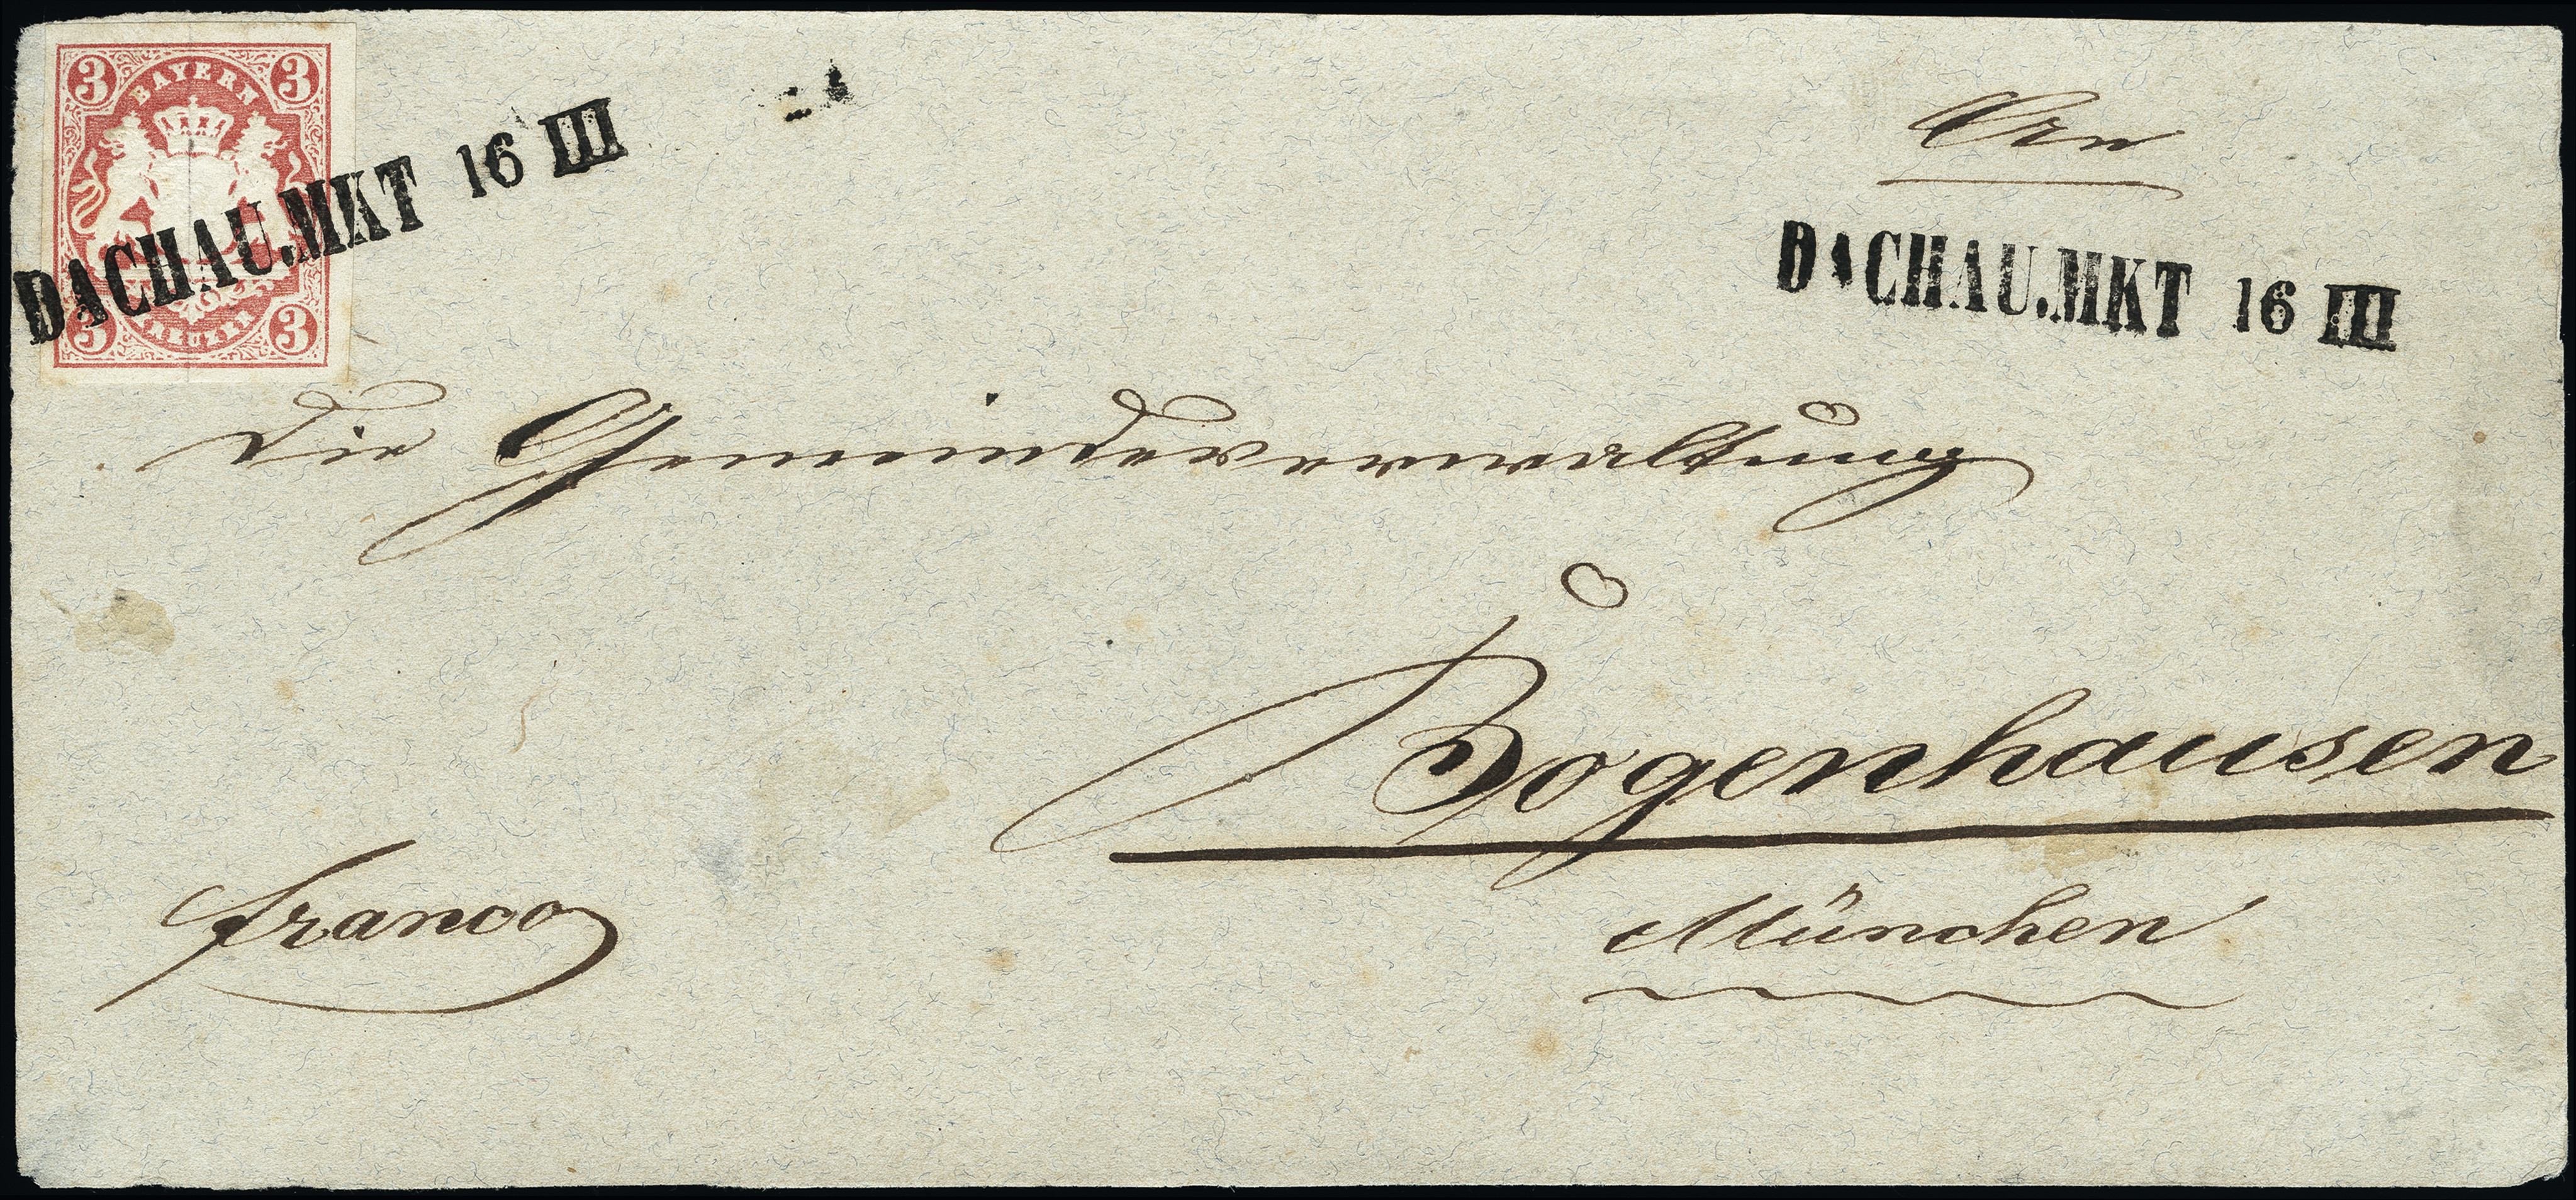 3 BAYERN 3
DACHAU.MKT 16 III
3 KREUZER 3
An
DACHAU.MKT 16 III
die Gemeindeverwaltung
Bogenhausen
München
franco